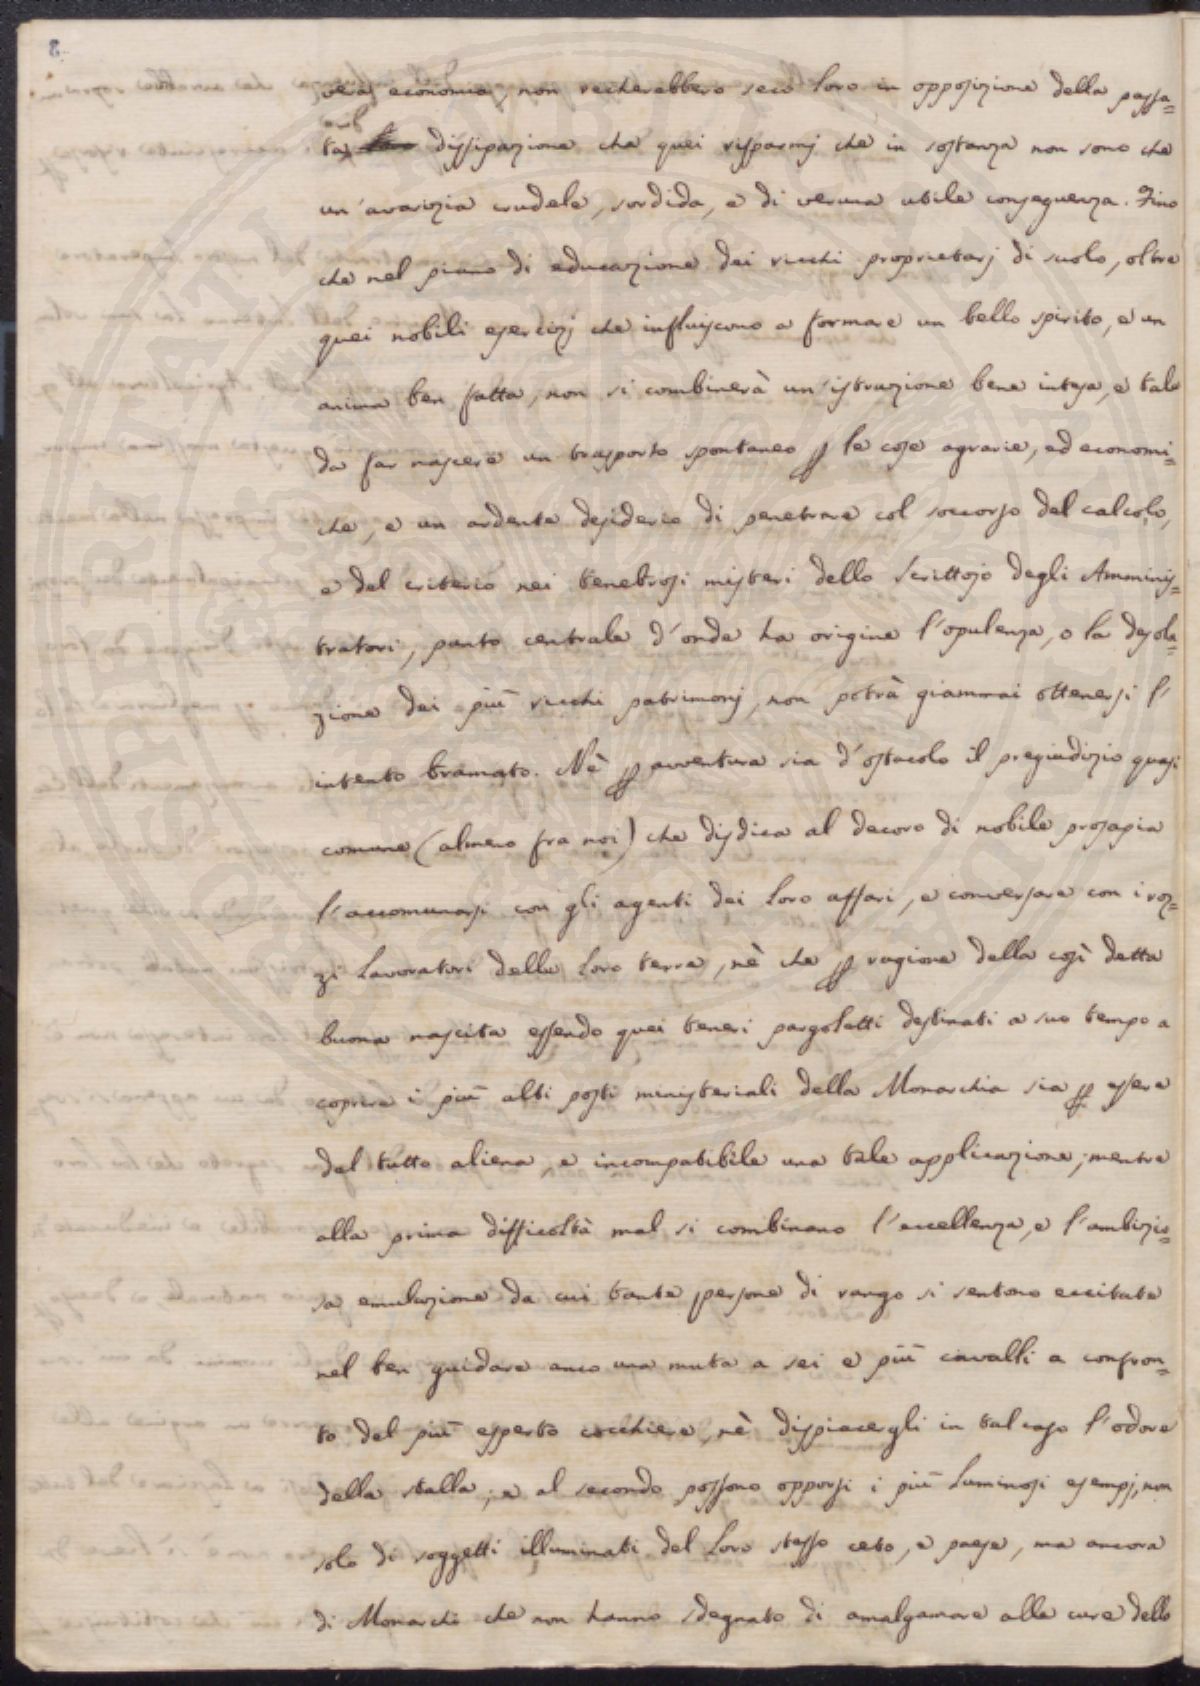 vera economia, non recherebbero seco loro in opposizione della passa=
ta dissipazione che quei risparmj che in sostanza non sono che
un'avarizia crudele, sordida, e di veruna utile conseguenza. Fino
che nel piano di educazione dei ricchi proprietarj di suolo, oltre
quei nobili esercizj che influiscono a formare un bello spirito, e un
anima ben fatta, non si combinerà un'istruzione bene intesa, e tale
da far nascere un trasporto spontaneo p le cose agrarie, ed economi=
che, e un ardente desiderio di penetrare col soccorso del calcolo,
e del criterio nei tenebrosi misteri dello Scrittojo degli Amminis=
tratori, punto centrale d'onde ha origine l'opulenza, o la desola=
zione dei più ricchi patrimonj, non potrà giammai ottenersi l'
intento bramato. Nè p avventura sia d'ostacolo il pregiudizio quasi
comune (almeno fra noi) che disdica al decoro di nobile prosapia
l'accomunarsi con gli agenti dei loro affari, e conversare con i roz=
zi Lavoratori delle Loro terre, nè che p ragione della così detta
buona nascita essendo quei teneri pargoletti destinati a suo tempo a
coprire i più alti posti ministeriali della Monarchia sia p essere
del tutto aliena, e incompatibile una tale applicazione; mentre
alla prima difficoltà mal si combinano l'eccellenza, e l'ambizio=
sa emulazione da cui tante persone di rango si sentono eccitate
nel ben guidare anco una muta a sei e più cavalli a confron=
to del più esperto cocchiere, nè dispiacergli in tal caso l'odore
della stalla; e al secondo possono opporsi i più Luminosi esempj, non
solo di soggetti illuminati del Loro stesso ceto, e paese, ma ancora
di Monarchi che non hanno sdegnato di amalgamare alle cure dello